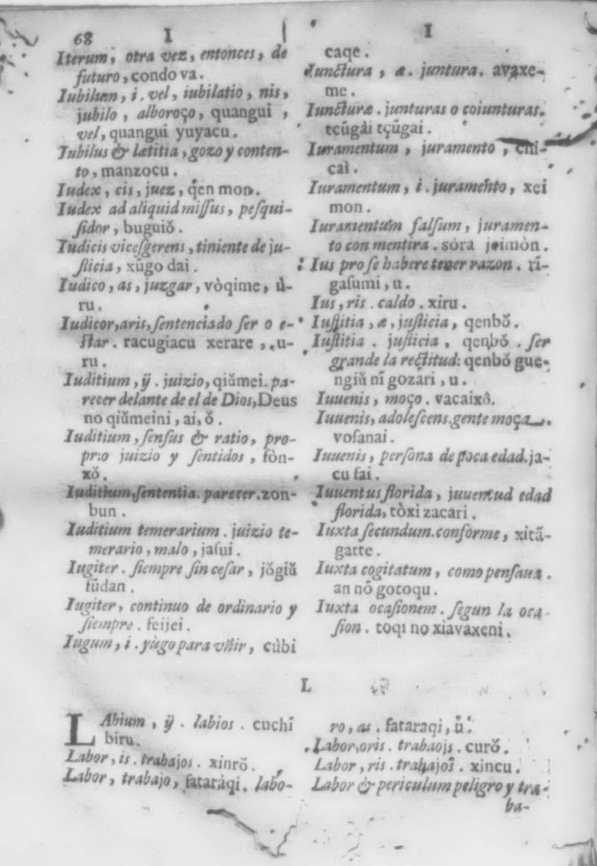 68 I
Iterum, otra vez, entonces, de
futuro, condo va.
Iubilum, i. vel, iubilatio, nis,
jubilo, alboroço, quangui,
vel, quangui yuyacu.
Iubilus & lætitia, gozo y conten-
to, manzocu.
Iudex, cis, juez, qen mon.
Iudex ad aliquid missus, pesqui-
sidor, buguiǒ.
Iudicis vicesgerens, tiniente de ju-
sticia, xùgo dai.
Iudico, as, juzgar, vòqime, ù-
ru.
Iudicor, aris, sentenciado ser o e-
star. racugiacu xerare, u-
ru.
Iuditium, ÿ. juizio, qiǔmei. pa-
recer delante de el de Dios, Deus
no qiǔmeini, ai, ǒ.
Iuditium, sensus & ratio, pro-
prio juizio y sentidos, fòn-
xǒ.
Iuditium, sententia. parecer. zon-
bun.
Iuditium temerarium. juizio te-
merario, malo, jasui.
Iugiter. siempre sin cesar, jǒgiǔ
fǔdan.
Iugiter, continuo de ordinario y
siempre. feijei.
Iugum, i. yùgo para vñir, cúbi
I
caqe.
Iunctura, æ. juntura. avaxe-
me.
Iuncturæ. junturas o coiunturas.
tçùgǎi tçǔgai.
Iuramentum, juramento, chi-
cai.
Iuramentum, i. juramẽto, xei
mon.
Iuramentum falsum, juramen-
to con mentira. sora jeimòn.
Ius pro se habere tener razon. rí-
gafumi, u.
Ius, ris. caldo. xiru.
Iustitia, æ, justicia, qenbǒ.
Iustitia. justicia, qenbǒ. ser
grande la rectitud: qenbǒ gue-
ngiǔ nì gozàri, u.
Iuuenis, moço. vacaixǔ.
Iuuenis, adolescens. gente moça.
vosanai.
Iuuenis, persona de poca edad. ja-
cu fai.
Iuuentus florida, juuentud edad
florida, tòxi zacari.
Iuxta secundum. conforme, xitǎ-
gatte.
Iuxta cogitatum, como pensaua.
an nǒ gotoqu.
Iuxta ocasionem. segun la oca-
sion. toqi no xiavaxeni.
L
LAbium, ÿ. labios. cuchî
biru.
Labor, is. trabajos. xinrǒ.
Labor, trabajo, fataràqi. labo-
ro, as. fataraqi, ǔ.
Labor, oris. trabaojs. curǒ.
Labor, ris. trabajos. xincu.
Labor & periculum peligro y tra-
ba-